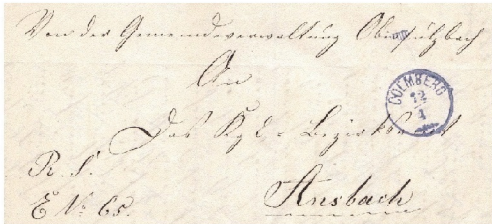 Von der Gemeindeverwaltung Obersulzbach
An
COLMBERG
12
4
Das Kgl. Bezirksamt
R. S.
E. No 65.
Ansbach